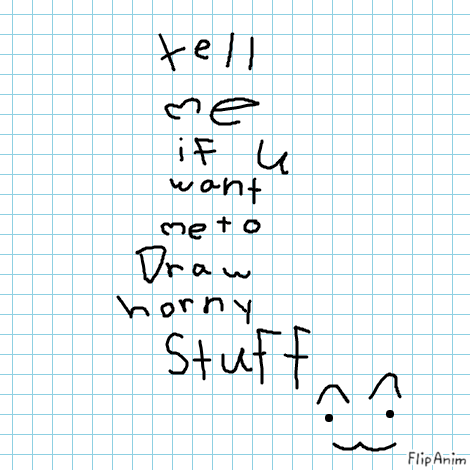 tell
me
if u
want
me to
Draw
horny
Stuff
FlipAnim